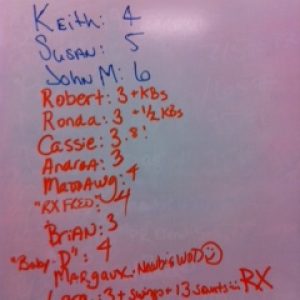 Keith: 4
Susan: 5
John M: 6
Robert: 3 + KBs
Ronda: 3 + 1/2 KBs
Cassie: 3.8!
Andrea: 3
MattDawg: 4
"RX FRED": 4
Brian: 3
"Baby D": 4
Margaux: Newbie WOD
3 + swings + 13 squats RX